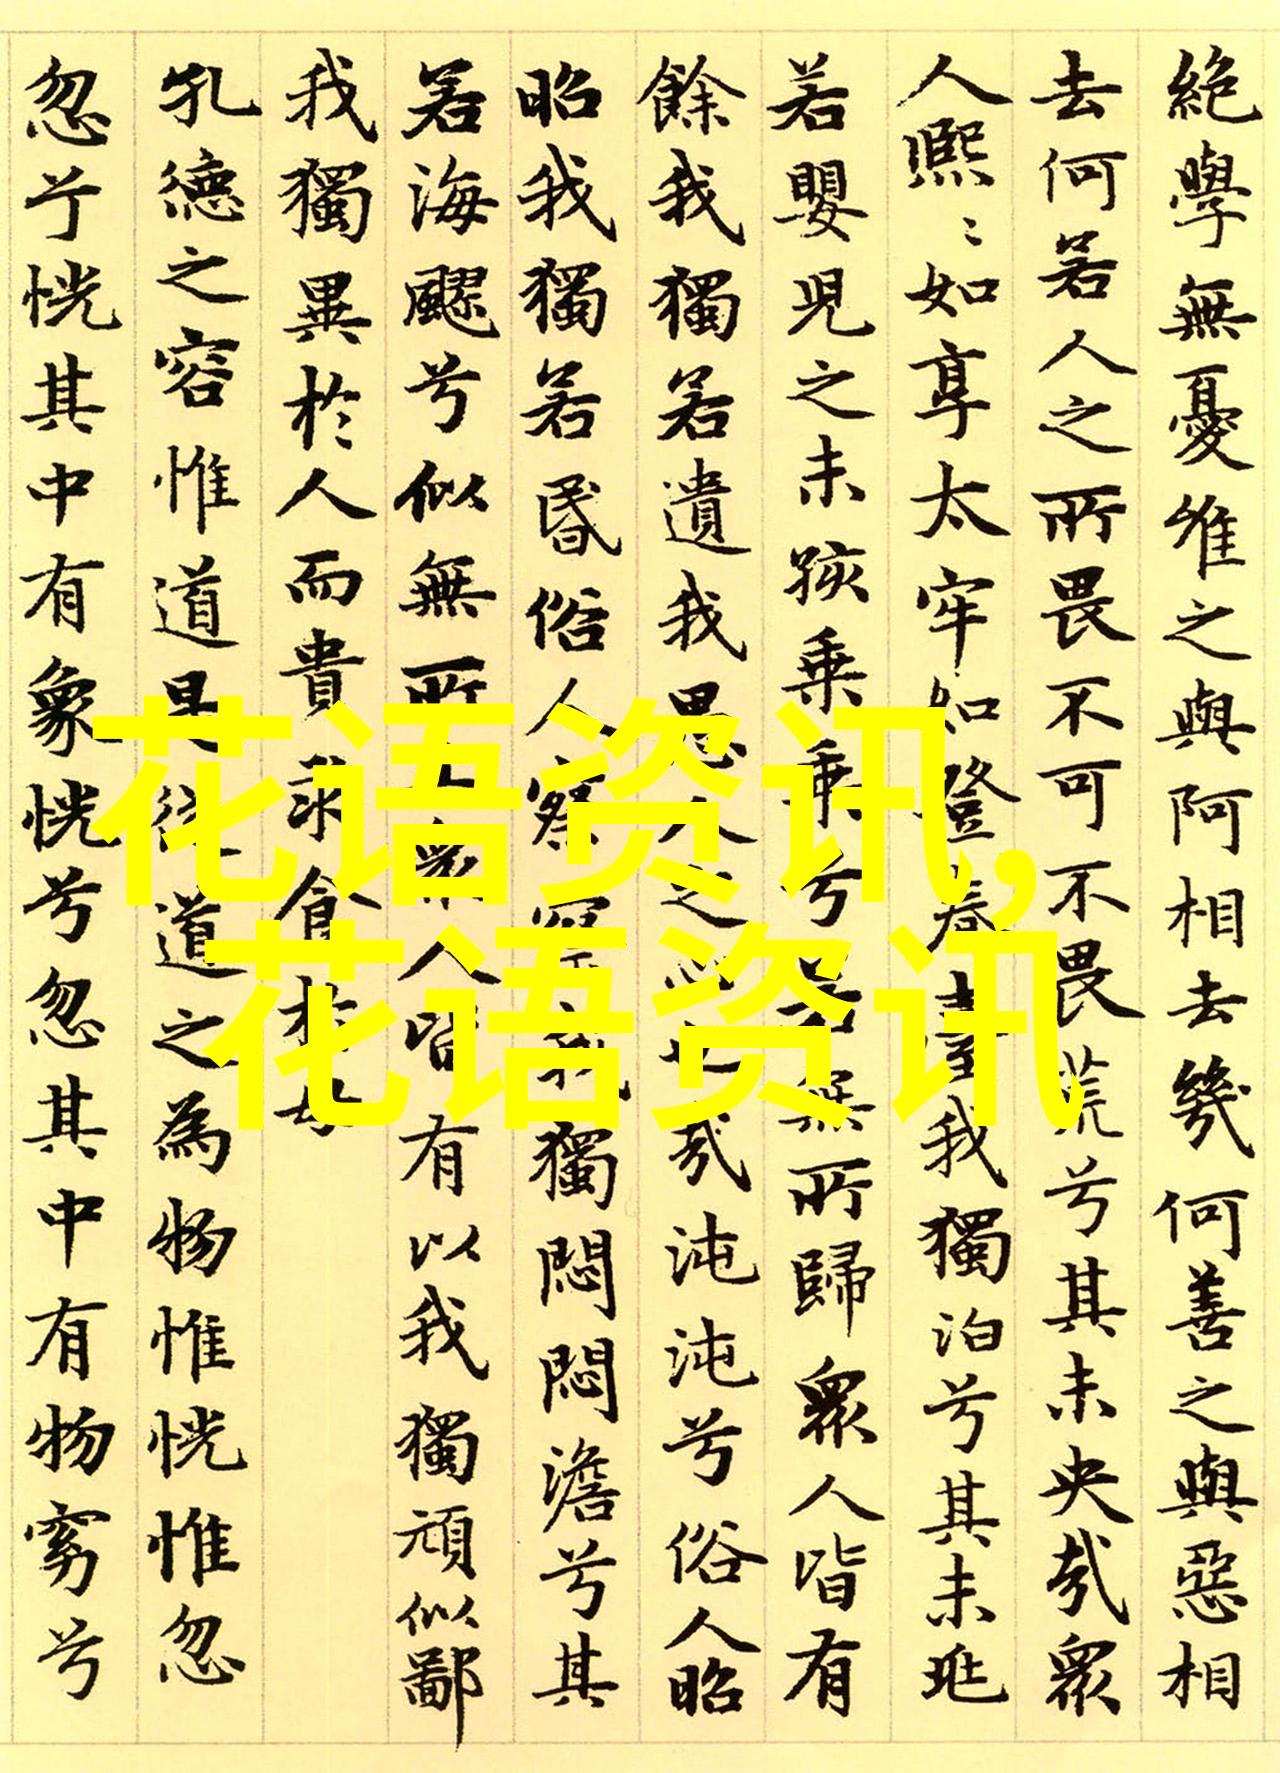 絶學無憂唯之與阿相去幾何善之與惡相
去何若人之所畏不可不畏荒兮其未央哉眾
人熙〻如享太牢如登春臺我獨泊兮其未兆
若嬰児之未孩乗乗兮若無所歸眾人皆有
餘我獨若遺我愚人之心也哉沌沌兮俗人昭
昭我獨若昏俗人察察我獨悶悶澹兮其
若海飂兮似無所止眾人皆有以我獨頑似鄙
我獨異於人而貴求食於母
孔德之容惟道是從道之為物惟恍惟忽
忽兮恍其中有象恍兮忽其中有物窈兮
花语资讯,
花语资讯